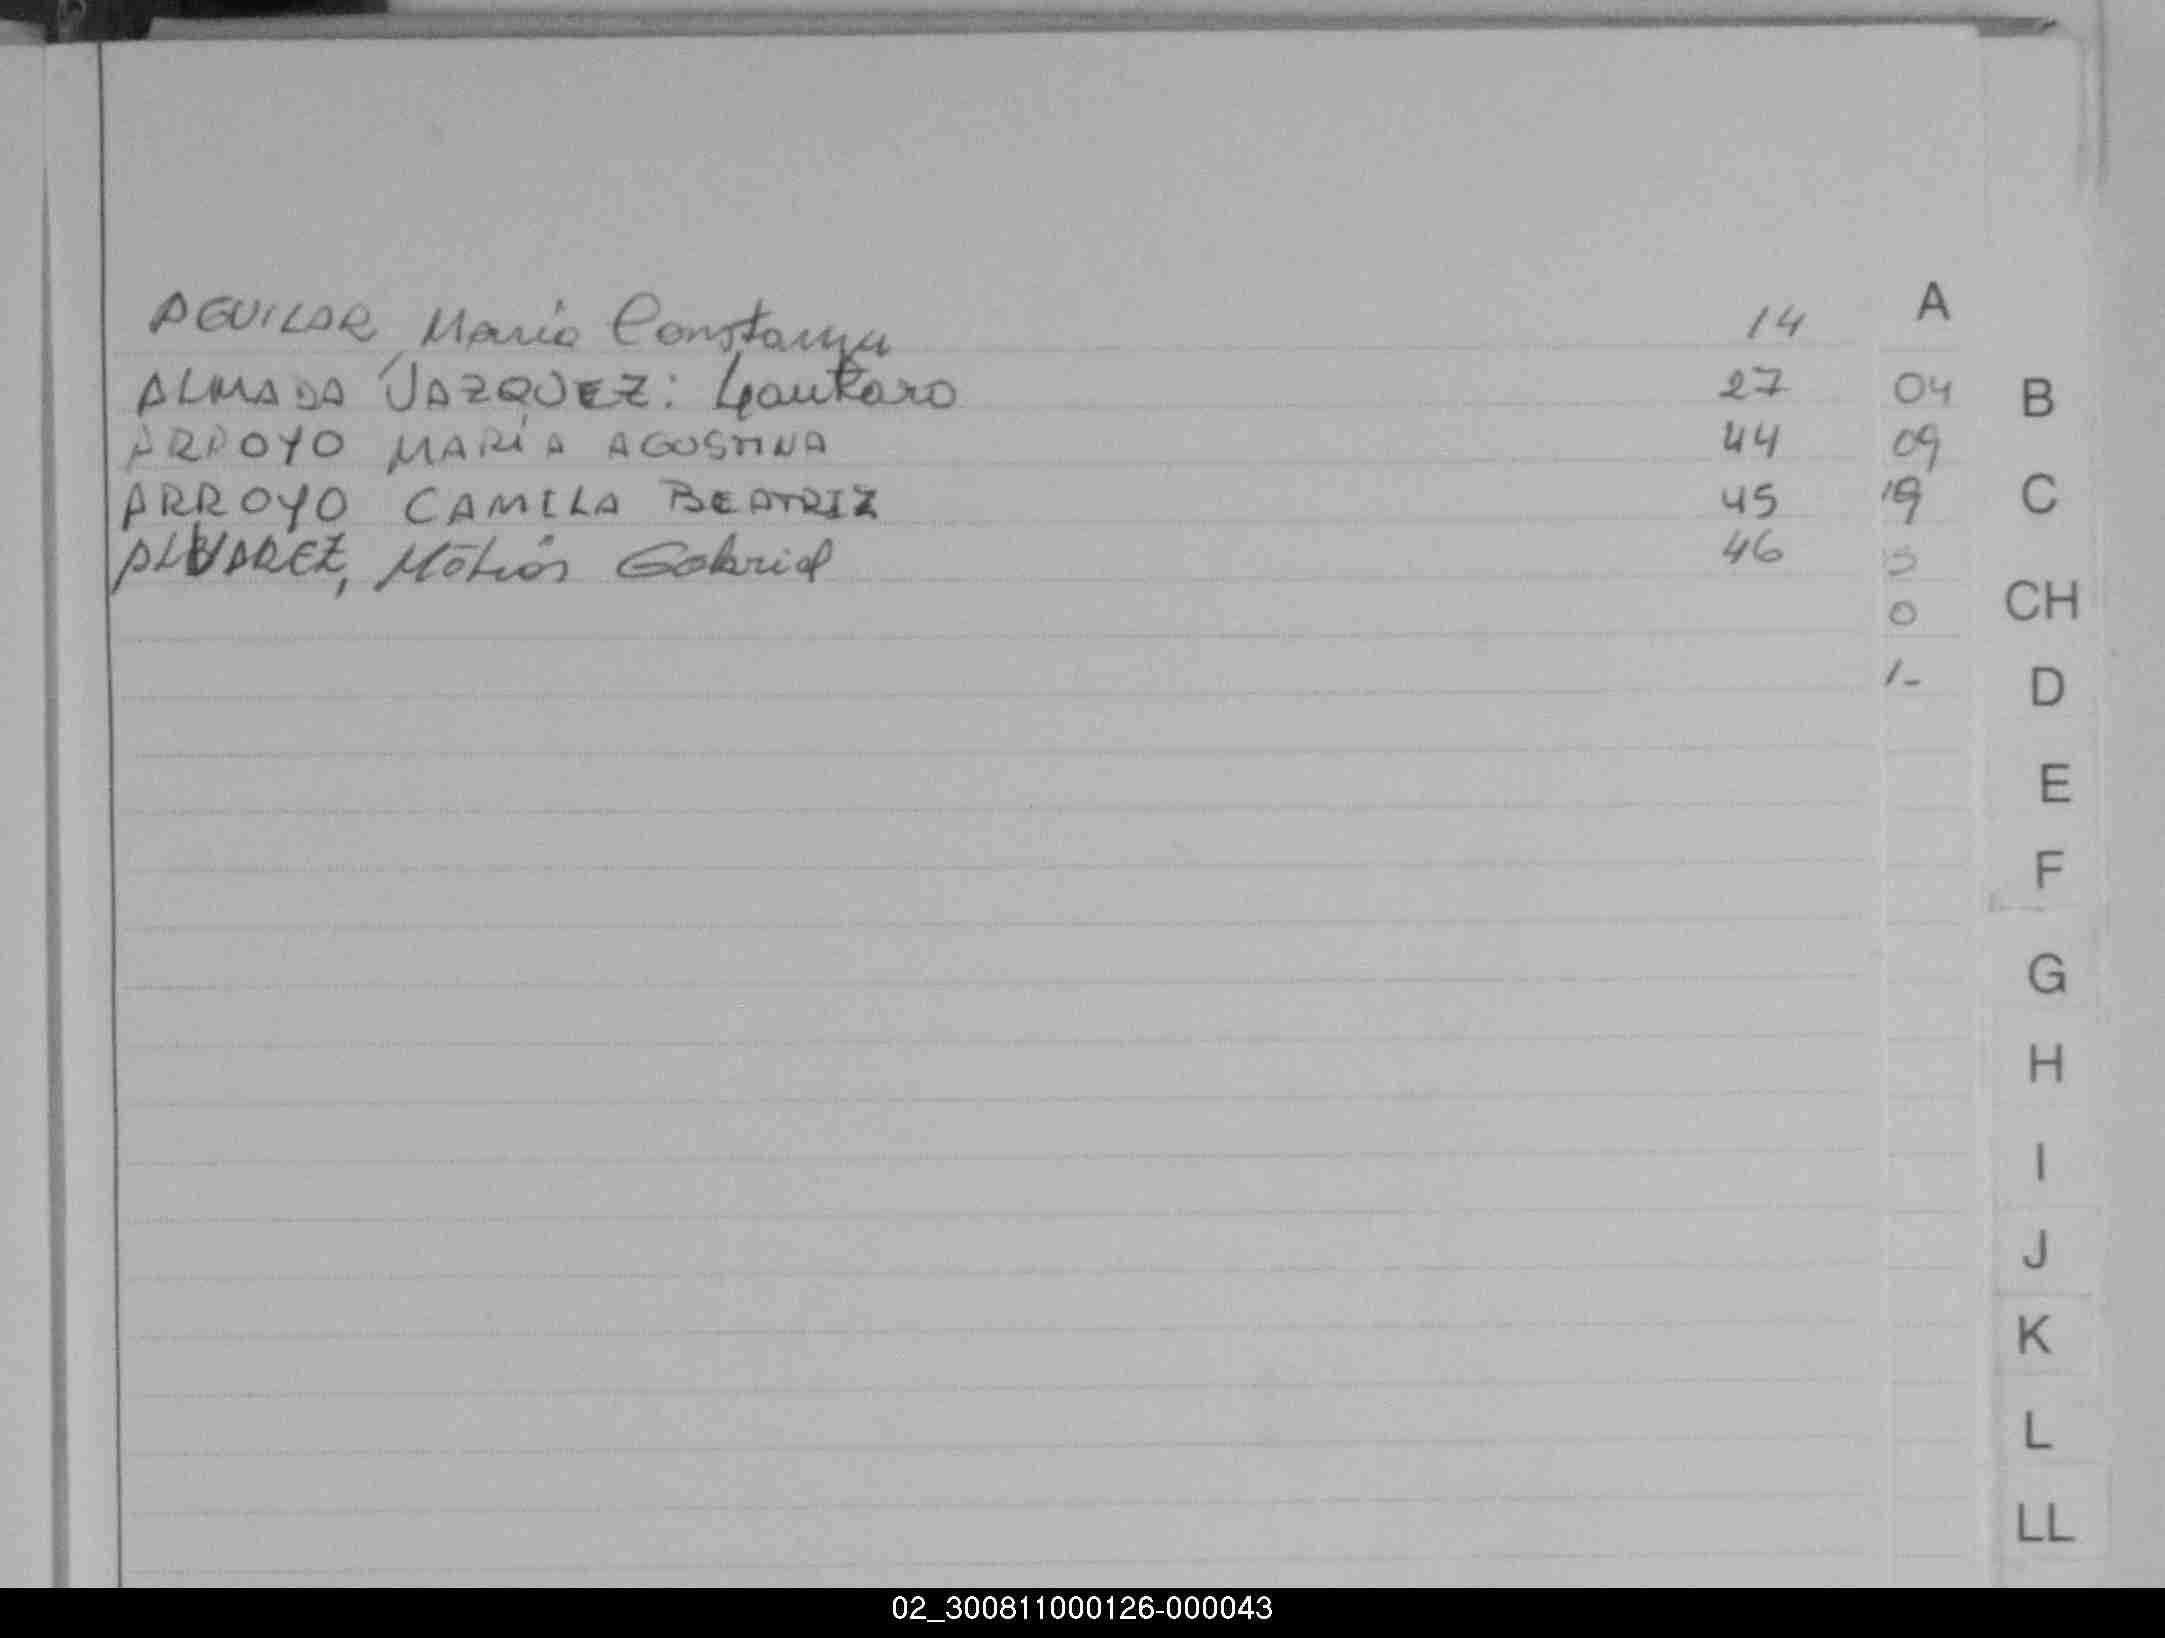 A
AGUILAR María Constanza 14
ALMADA VAZQUEZ: Lautaro 27 04 B
ARROYO MARÍA AGOSTINA 44 09
ARROYO CAMILA BEATRIZ 45 19 C
ALVAREZ, Matías Gabriel 46
0 CH
1- D
E
F
G
H
I
J
K
L
LL
02_300811000126-000043